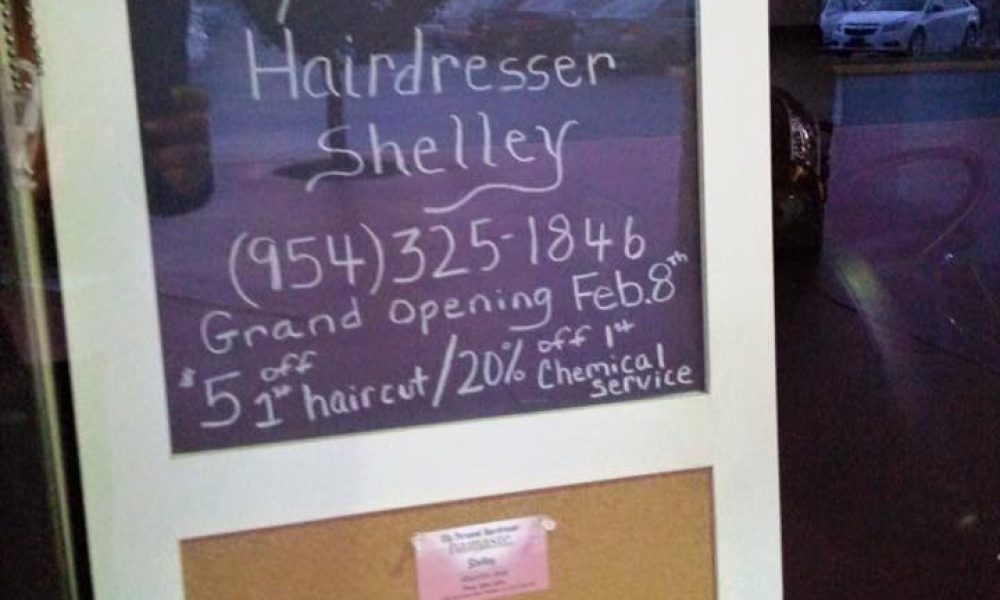 Hairdresser
Shelley
(954)325-1846
Grand opening Feb.8th
$5 off 1st haircut/20% off 1st Chemical service
Shelley